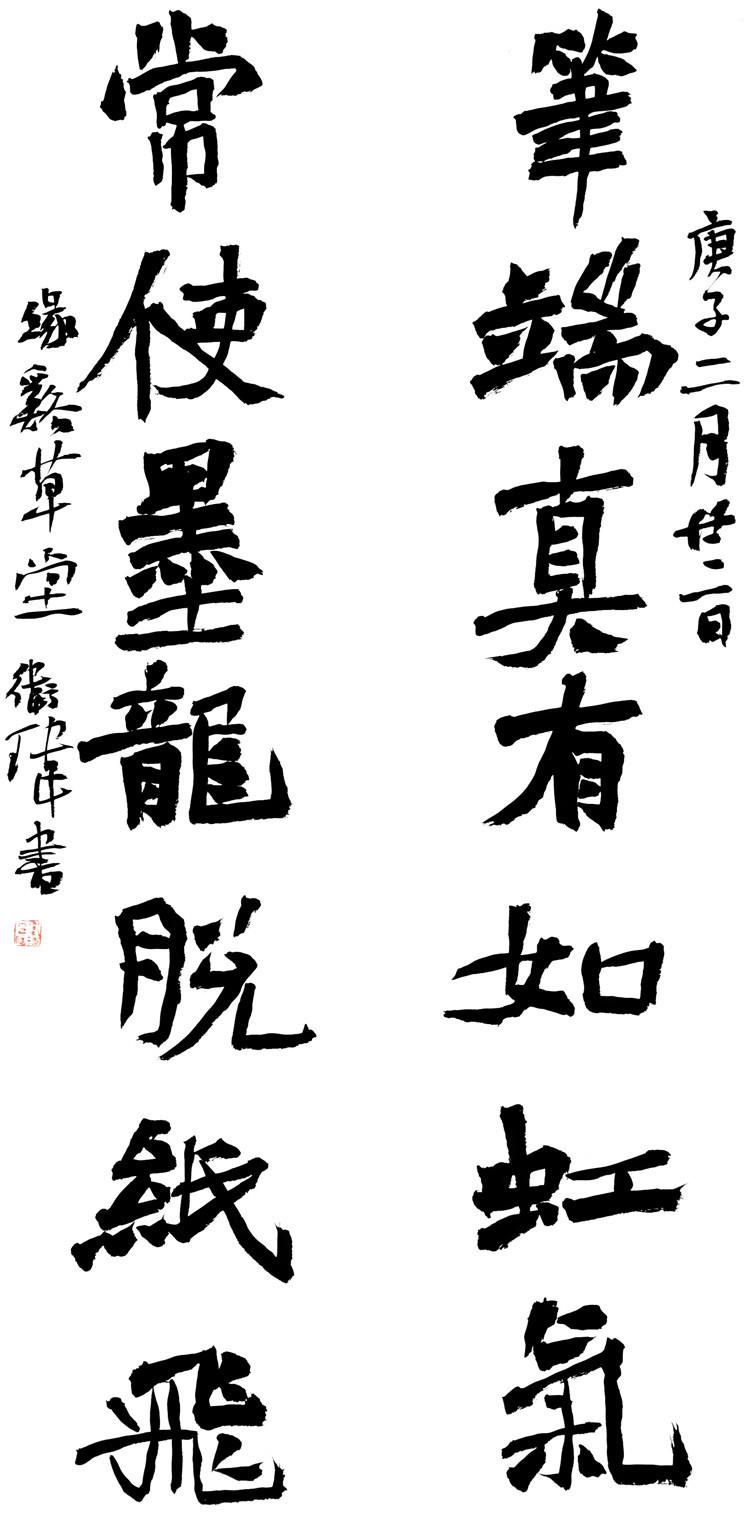 庚子二月廿二日
筆端真有如虹氣
常使墨龍脱紙飛
緣谿草堂 衛瑋書